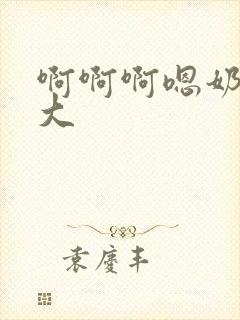 啊啊啊嗯奶
大
袁庆丰